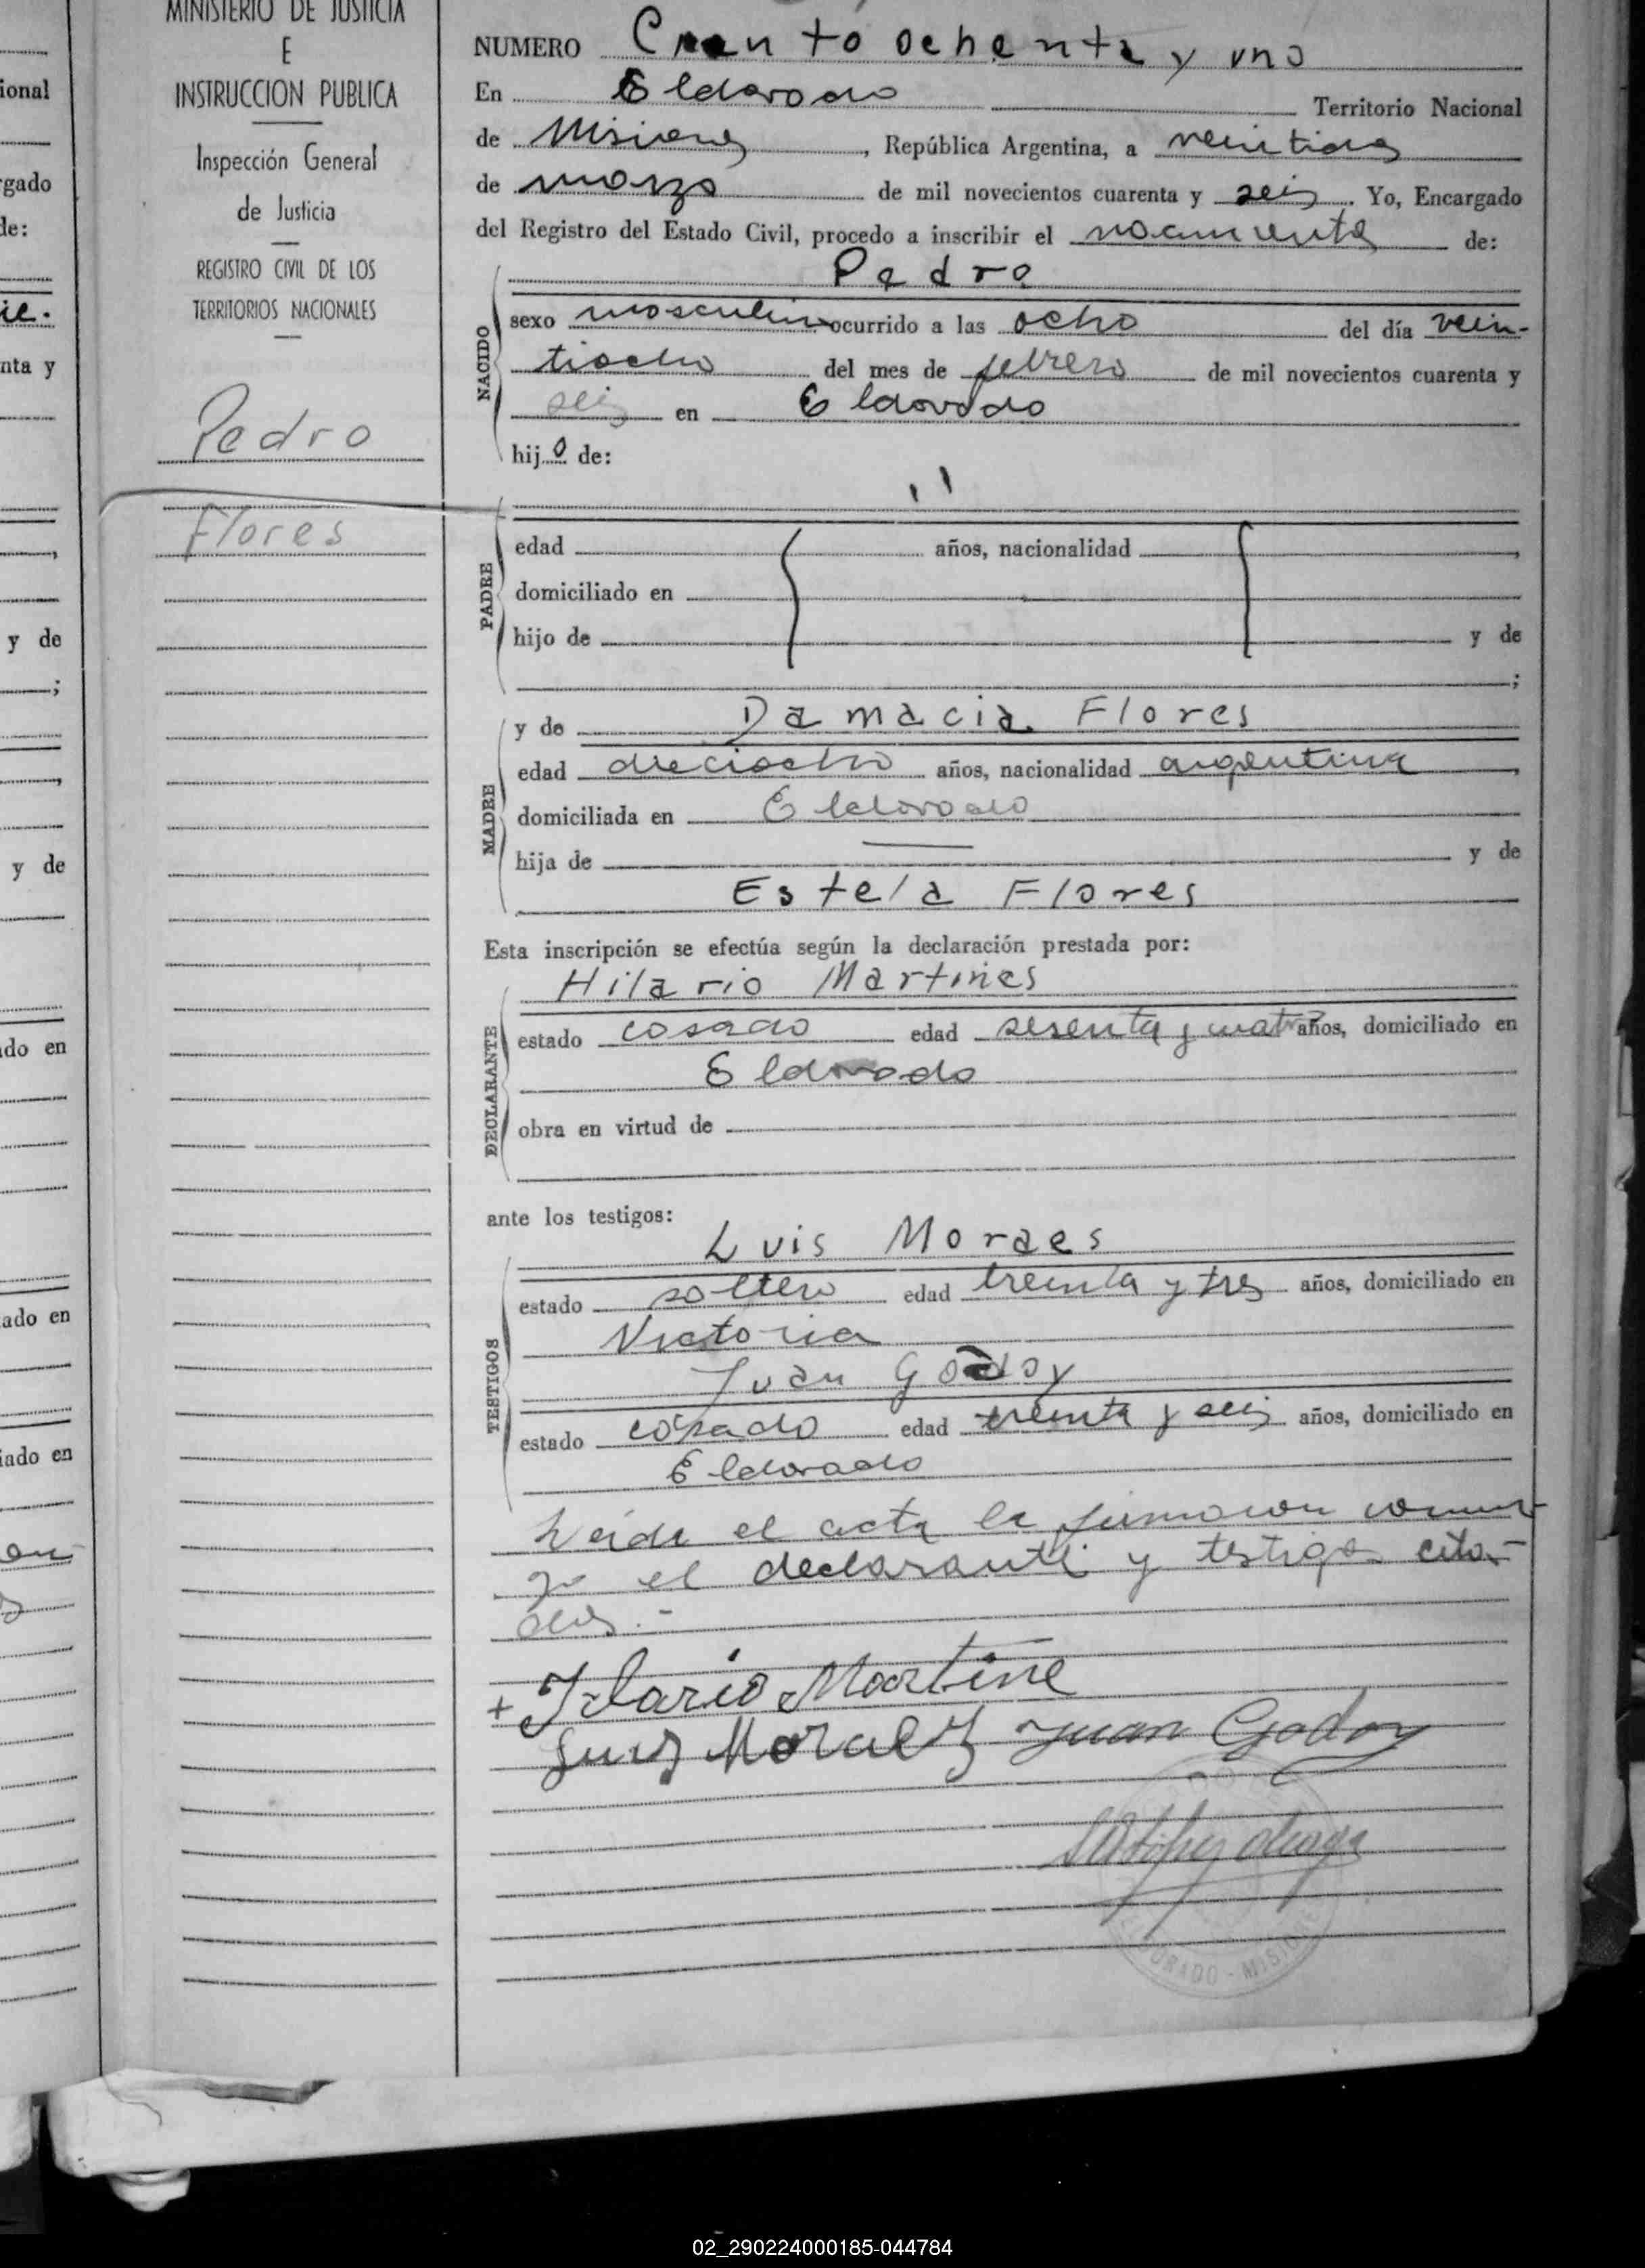 MINISTERIO DE JUSTICIA
E
INSTRUCCION PUBLICA
Inspección General
de Justicia
REGISTRO CIVIL DE LOS
TERRITORIOS NACIONALES
Pedro
Flores
ional
gado
de:
nta y
y de
y de
do en
ado en
iado en
NUMERO Ciento ochenta y uno
En Eldorado Territorio Nacional
de Misiones, República Argentina, a veintidos
de marzo de mil novecientos cuarenta y seis. Yo, Encargado
del Registro del Estado Civil, procedo a inscribir el nacimiento de:
Pedro
NACIDO
sexo masculino ocurrido a las ocho del día vein-
tiocho del mes de febrero de mil novecientos cuarenta y
seis en Eldorado
hijo de:
PADRE
edad años, nacionalidad ,
domiciliado en
hijo de y de
;
MADRE
y de Damacia Flores
edad dieciocho años, nacionalidad argentina,
domiciliada en Eldorado
hija de — y de
Estela Flores
Esta inscripción se efectúa según la declaración prestada por:
DECLARANTE
Hilario Martines
estado casado edad sesenta y cuatro años, domiciliado en
Eldorado
obra en virtud de
ante los testigos:
TESTIGOS
Luis Moraes
estado soltero edad treinta y tres años, domiciliado en
Victoria
Juan Godoy
estado casado edad treinta y seis años, domiciliado en
Eldorado
Leida el acta la firmaron conmi-
go el declarante y testigos cita-
dos.-
+ Ilario Martine
Luis Moraez Juan Godoy
ORADO - MISIONES
02_290224000185-044784